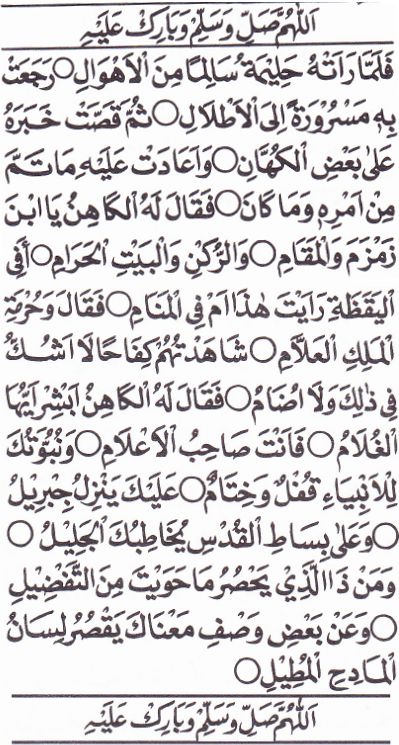 اَللّٰهُمَّ صَلِّ وَسَلِّمْ وَبَارِكْ عَلَيْهِ
فَلَمَّا رَاَتْهُ حَلِيْمَةُ سَالِمًا مِنَ الْاَهْوَالِ ○ رَجَعَتْ
بِهٖ مَسْرُوْرَةً اِلَى الْاَطْلَالِ ○ ثُمَّ قَصَّتْ خَبَرَهٗ
عَلٰى بَعْضِ الْكُهَّانِ ○ وَاَعَادَتْ عَلَيْهِ مَاتَمَّ
مِنْ اَمْرِهٖ وَمَا كَانَ ○ فَقَالَ لَهُ الْكَاهِنُ يَا ابْنَ
زَمْزَمَ وَالْمَقَامِ ○ وَالرُّكْنِ وَالْبَيْتِ الْحَرَامِ ○ اَفِى
الْيَقَظَةِ رَاَيْتَ هٰذَا اَمْ فِى الْمَنَامِ ○ فَقَالَ وَحُرْمَةِ
الْمَلِكِ الْعَلَّامِ ○ شَاهَدْتُهُمْ كِفَاحًا لَا اَشُكُّ
فِى ذٰلِكَ وَلَا اُضَامُ ○ فَقَالَ لَهُ الْكَاهِنُ اَبْشِرْ اَيُّهَا
الْغُلَامُ ○ فَاَنْتَ صَاحِبُ الْاَعْلَامِ ○ وَنُبُوَّتُكَ
لِلْاَنْبِيَاءِ قُفْلٌ وَخِتَامٌ ○ عَلَيْكَ يَنْزِلُ جِبْرِيْلُ
○ وَعَلٰى بِسَاطِ الْقُدْسِ يُخَاطِبُكَ الْجَلِيْلُ ○
وَمَنْ ذَا الَّذِيْ يَحْصُرُ مَا حَوَيْتَ مِنَ التَّفْضِيْلِ
○ وَعَنْ بَعْضِ وَصْفِ مَعْنَاكَ يَقْصُرُ لِسَانُ
الْمَادِحِ الْمُطِيْلِ ○
اَللّٰهُمَّ صَلِّ وَسَلِّمْ وَبَارِكْ عَلَيْهِ